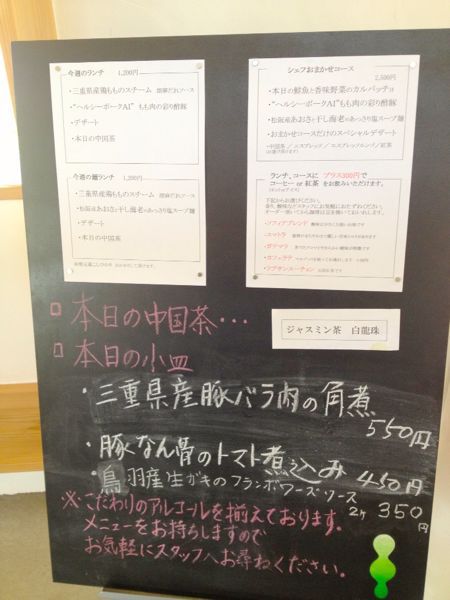 今週のランチ 1,200円
・三重県産鶏もものスチーム
・"ヘルシーポークAI" もも肉の彩り酢豚
・デザート
・本日の中国茶
今週の麺ランチ 1,200円
・三重県産鶏もものスチーム
・松阪産あおさと干し海老のあっさり塩スープ麺
・デザート
・本日の中国茶
シェフおまかせコース
2,500円
・本日の鮮魚と香味野菜のカルパッチョ
・"ヘルシーポークAI" もも肉の彩り酢豚
・松阪産あおさと干し海老のあっさり塩スープ麺
・おまかせコースだけのスペシャルデザート
ランチ、コースに プラス300円で
コーヒー or 紅茶 をお飲みいただけます。
下記からお選びください。
・ソフィアブレンド
・スマトラ
・ガテマラ
・カフェラテ
・ラプサンスーチョン
ジャスミン茶 白龍珠
本日の中国茶・・・
本日の小皿
・三重県産豚バラ肉の角煮
550円
・豚なん骨のトマト煮込み 450円
・鳥羽産生がきのフランボワーズソース
2ヶ 350円
※こだわりのアルコールを揃えております。
メニューをお持ちしますので
お気軽にスタッフへお尋ねください。